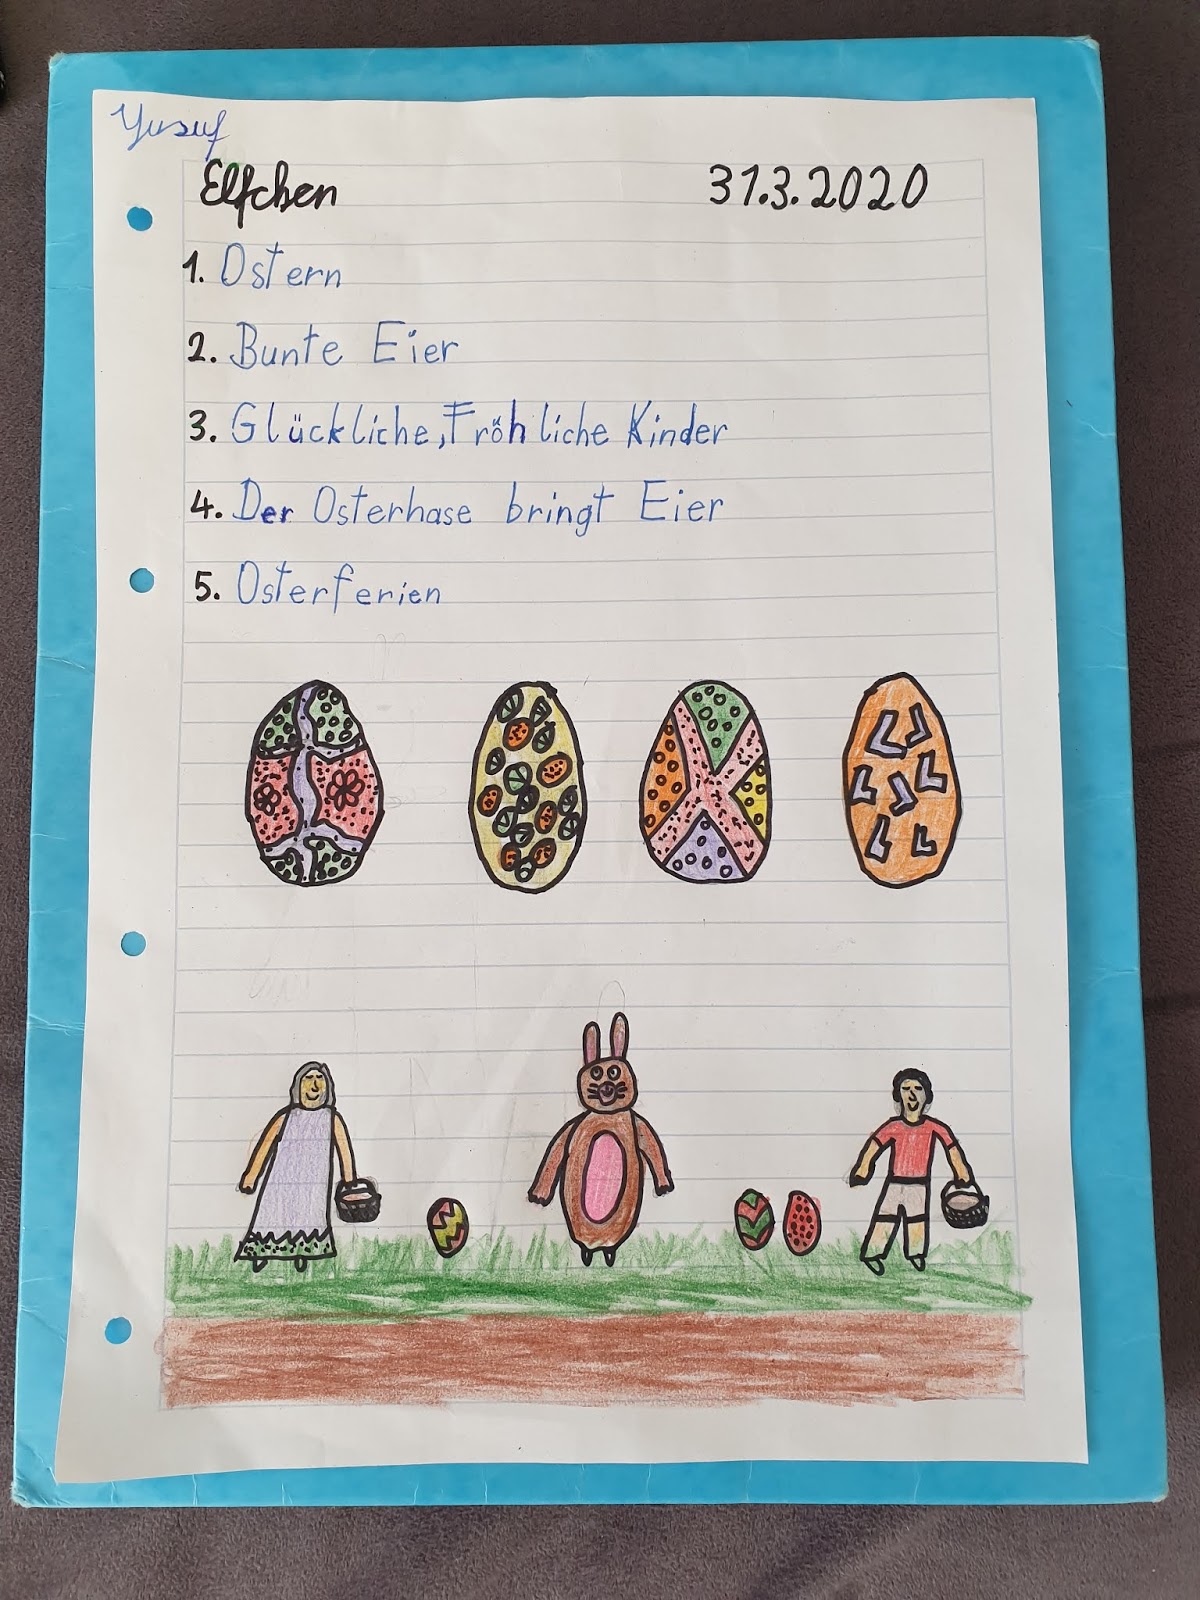 Yusuf
Elfchen 31.3.2020
1. Ostern
2. Bunte Eier
3. Glückliche, Fröhliche Kinder
4. Der Osterhase bringt Eier
5. Osterferien